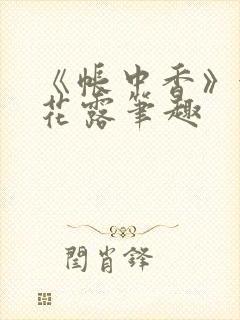 《帐中香》
花露笔趣
闫肖锋